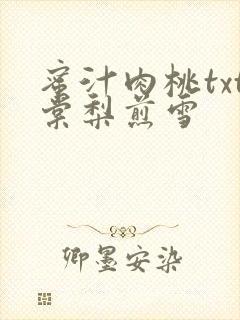 蜜汁肉桃txt
棠梨煎雪
卿墨安染